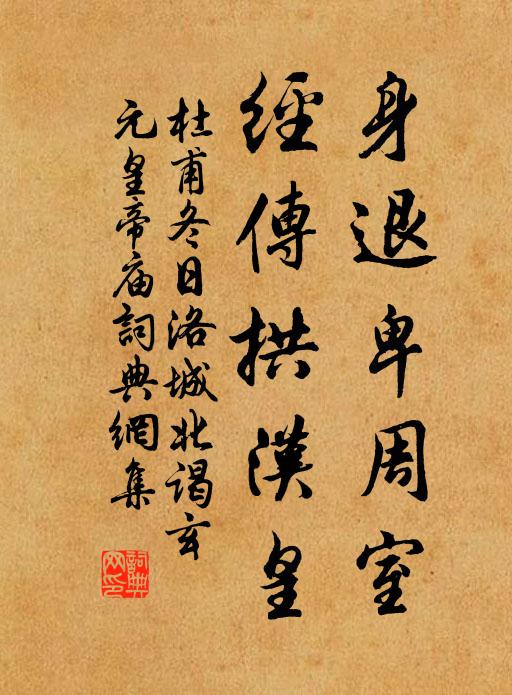 身退卑周室
經傳拱漢皇
杜甫冬日洛城北謁玄
元皇帝庙詞典網集
詞典網印